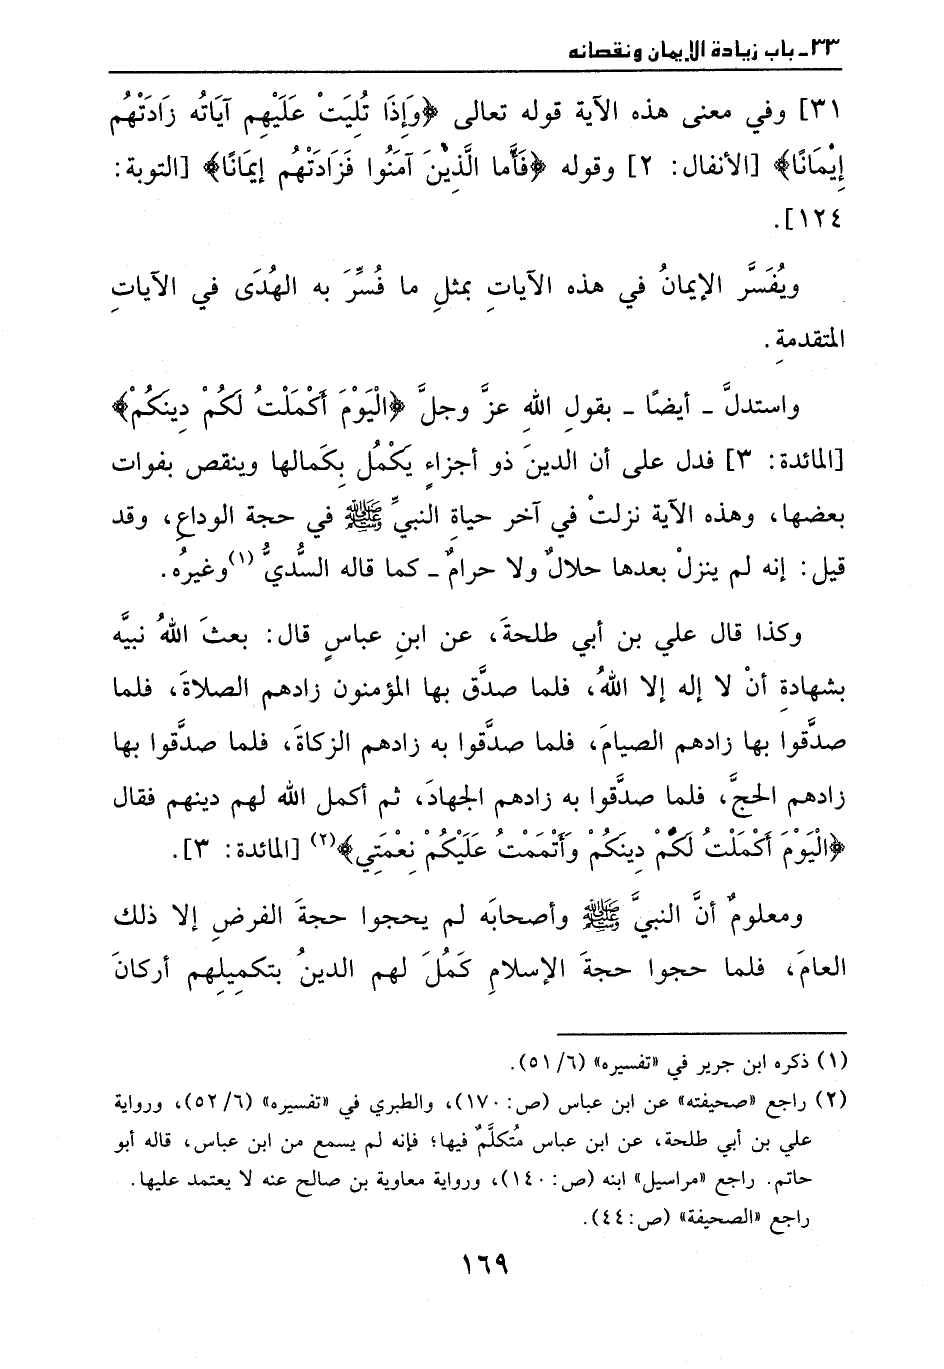 ٣٣ـ باب زيادة الإيمان ونقصانه
٣١] وفي معنى هذه الآية قوله تعالى ﴿وَإِذَا تُلِيَتْ عَلَيْهِم آيَاتُه زَادَتْهُم
إِيْمَانًا﴾ [الأنفال: ٢] وقوله ﴿فَأَما الَّذِيْنَ آمَنُوا فَزَادَتْهُم إِيمَانًا﴾ [التوبة:
١٢٤].
ويُفَسَّر الإيمانُ في هذه الآياتِ بمثلِ ما فُسِّرَ به الهُدَى في الآياتِ
المتقدمةِ.
واستدلَّ ـ أيضًا ـ بقولِ اللهِ عزَّ وجلَّ ﴿الْيَوْمَ أَكْمَلْتُ لَكُمْ دِينَكُمْ﴾
[المائدة: ٣] فدل على أن الدينَ ذو أجزاءٍ يَكْمُل بِكَمالها وينقص بفوات
بعضها، وهذه الآية نزلتْ في آخر حياةِ النبيِّ ﷺ في حجة الوداعِ، وقد
قيل: إنه لم ينزلْ بعدها حلالٌ ولا حرامٌ ـ كما قاله السُّديُّ (١) وغيرُه.
وكذا قال علي بن أبي طلحةَ، عن ابنِ عباسٍ قال: بعثَ اللهُ نبيَّه
بشهادةِ أنْ لا إله إلا اللهُ، فلما صدَّق بها المؤمنون زادهم الصلاةَ، فلما
صدَّقوا بها زادهم الصيامَ، فلما صدَّقوا به زادهم الزكاةَ، فلما صدَّقوا بها
زادهم الحجَّ، فلما صدَّقوا به زادهم الجهادَ، ثم أكمل الله لهم دينهم فقال
﴿الْيَوْمَ أَكْمَلْتُ لَكُمْ دِينَكُمْ وَأَتْمَمْتُ عَلَيْكُمْ نِعْمَتِي﴾ (٢) [المائدة: ٣].
ومعلومٌ أنَّ النبيَّ ﷺ وأصحابَه لم يحجوا حجةَ الفرضِ إلا ذلك
العامَ، فلما حجوا حجةَ الإسلامِ كَمُلَ لهم الدينُ بتكمِيلِهم أركانَ
(١) ذكره ابن جرير في «تفسيره» (٦/ ٥١).
(٢) راجع «صحيفته» عن ابن عباس (ص: ١٧٠)، والطبري في «تفسيره» (٦/ ٥٢)، ورواية
علي بن أبي طلحة، عن ابن عباس مُتكلَّمٌ فيها؛ فإنه لم يسمع من ابن عباس، قاله أبو
حاتم. راجع «مراسيل» ابنه (ص: ١٤٠)، ورواية معاوية بن صالح عنه لا يعتمد عليها.
راجع «الصحيفة» (ص: ٤٤).
١٦٩